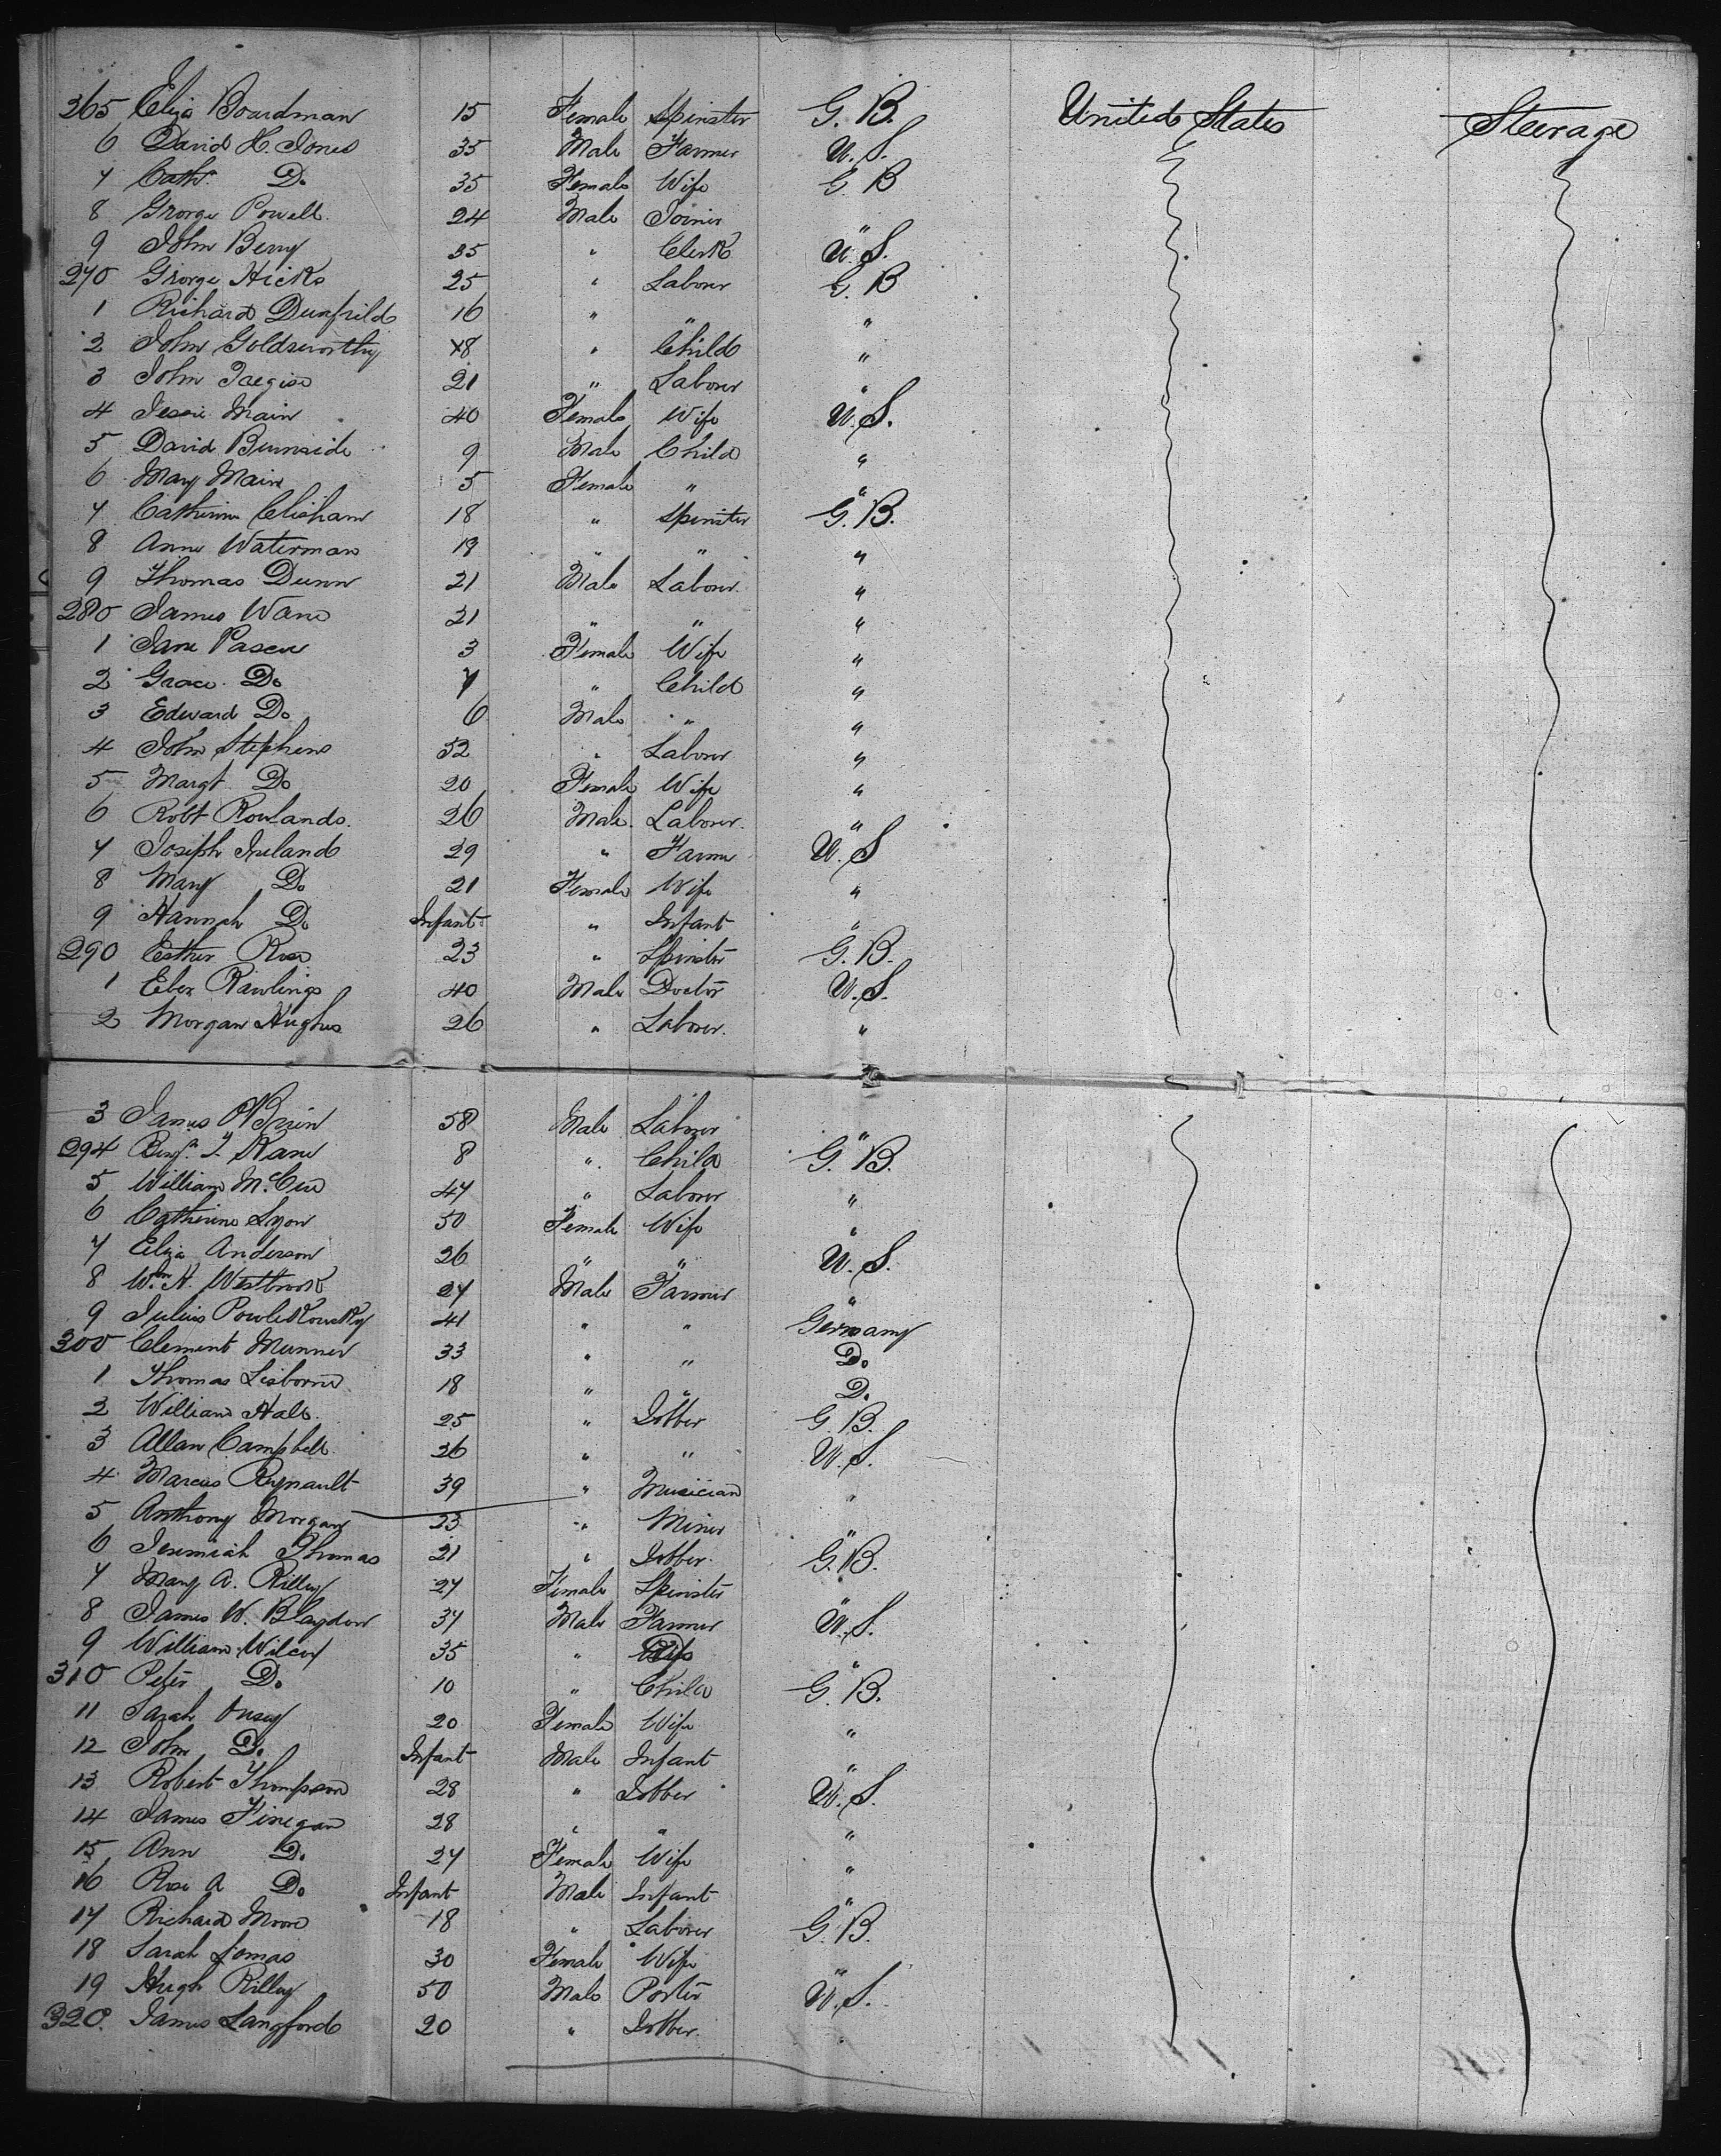 365 Eliza Boardman 15 Female Spinster G. B. United States Steerage
6 David H. Jones 35 Male Farmer U. S.
7 Cath. Do 35 Female Wife G. B
8 George Powell 24 Male Joiner "
9 John Berry 35 " Clerk U. S.
270 George Hicks 25 " Laborer G. B
1 Richard 16 " " "
2 John Goldsworthy 8 " Child "
3 John 21 " Laborer "
4 Jessie Main 40 Female Wife U. S.
5 David Burnside 9 Male Child "
6 Mary Main 5 Female " "
7 Catherine Clisham 18 " Spinster G. B.
8 Anne Waterman 19 " " "
9 Thomas Dunn 21 Male Laborer "
280 James 21 " " "
1 Jane Pascu 3 Female Wife "
2 Grace Do 7 " Child "
3 Edward Do 6 Male " "
4 John Stephens 32 " Laborer "
5 Margt Do 20 Female Wife "
6 Robt Rowlands 26 Male Laborer "
7 Joseph Ireland 29 " Farmer U. S
8 Mary Do 21 Female Wife "
9 Hannah Do Infant " Infant "
290 Esther Rose 23 " Spinster G. B.
1 Eben Rawlings 40 Male Doctor U. S.
2 Morgan Hughes 26 " Laborer "
3 James O'Brien 58 Male Laborer "
294 Benj. 8 " Child G. B.
5 William 47 " Laborer "
6 Catherine Lyon 50 Female Wife "
7 Eliza Anderson 26 " " U. S.
8 Wm H. Westbrook 27 Male Farmer "
9 Julius Powlekowsky 41 " " Germany
300 Clement Munner 33 " " Do
1 Thomas Lisborne 18 " " Do
2 William Hall 25 " Jobber G. B.
3 Allan Campbell 26 " " U. S.
4 Marcus Rynault 39 " Musician "
5 Anthony Morgan 23 " Miner "
6 Jeremiah Thomas 21 " Jobber G. B.
7 Mary A. Rilley 27 Female Spinster "
8 James W. Blagdon 37 Male Farmer U. S.
9 William Wilcox 35 " "
310 Peter Do 10 " Child G. B.
11 Sarah 20 Female Wife "
12 John Do Infant Male Infant "
13 Robert Thompson 28 " Jobber U. S.
14 James Finegan 28 " " "
15 Ann Do 27 Female Wife "
16 Rose A Do Infant Male Infant "
17 Richard Moore 18 " Laborer G. B.
18 Sarah Lomas 30 Female Wife "
19 Hugh Rilley 50 Male Porter U. S.
320. James Langford 20 " Jobber "